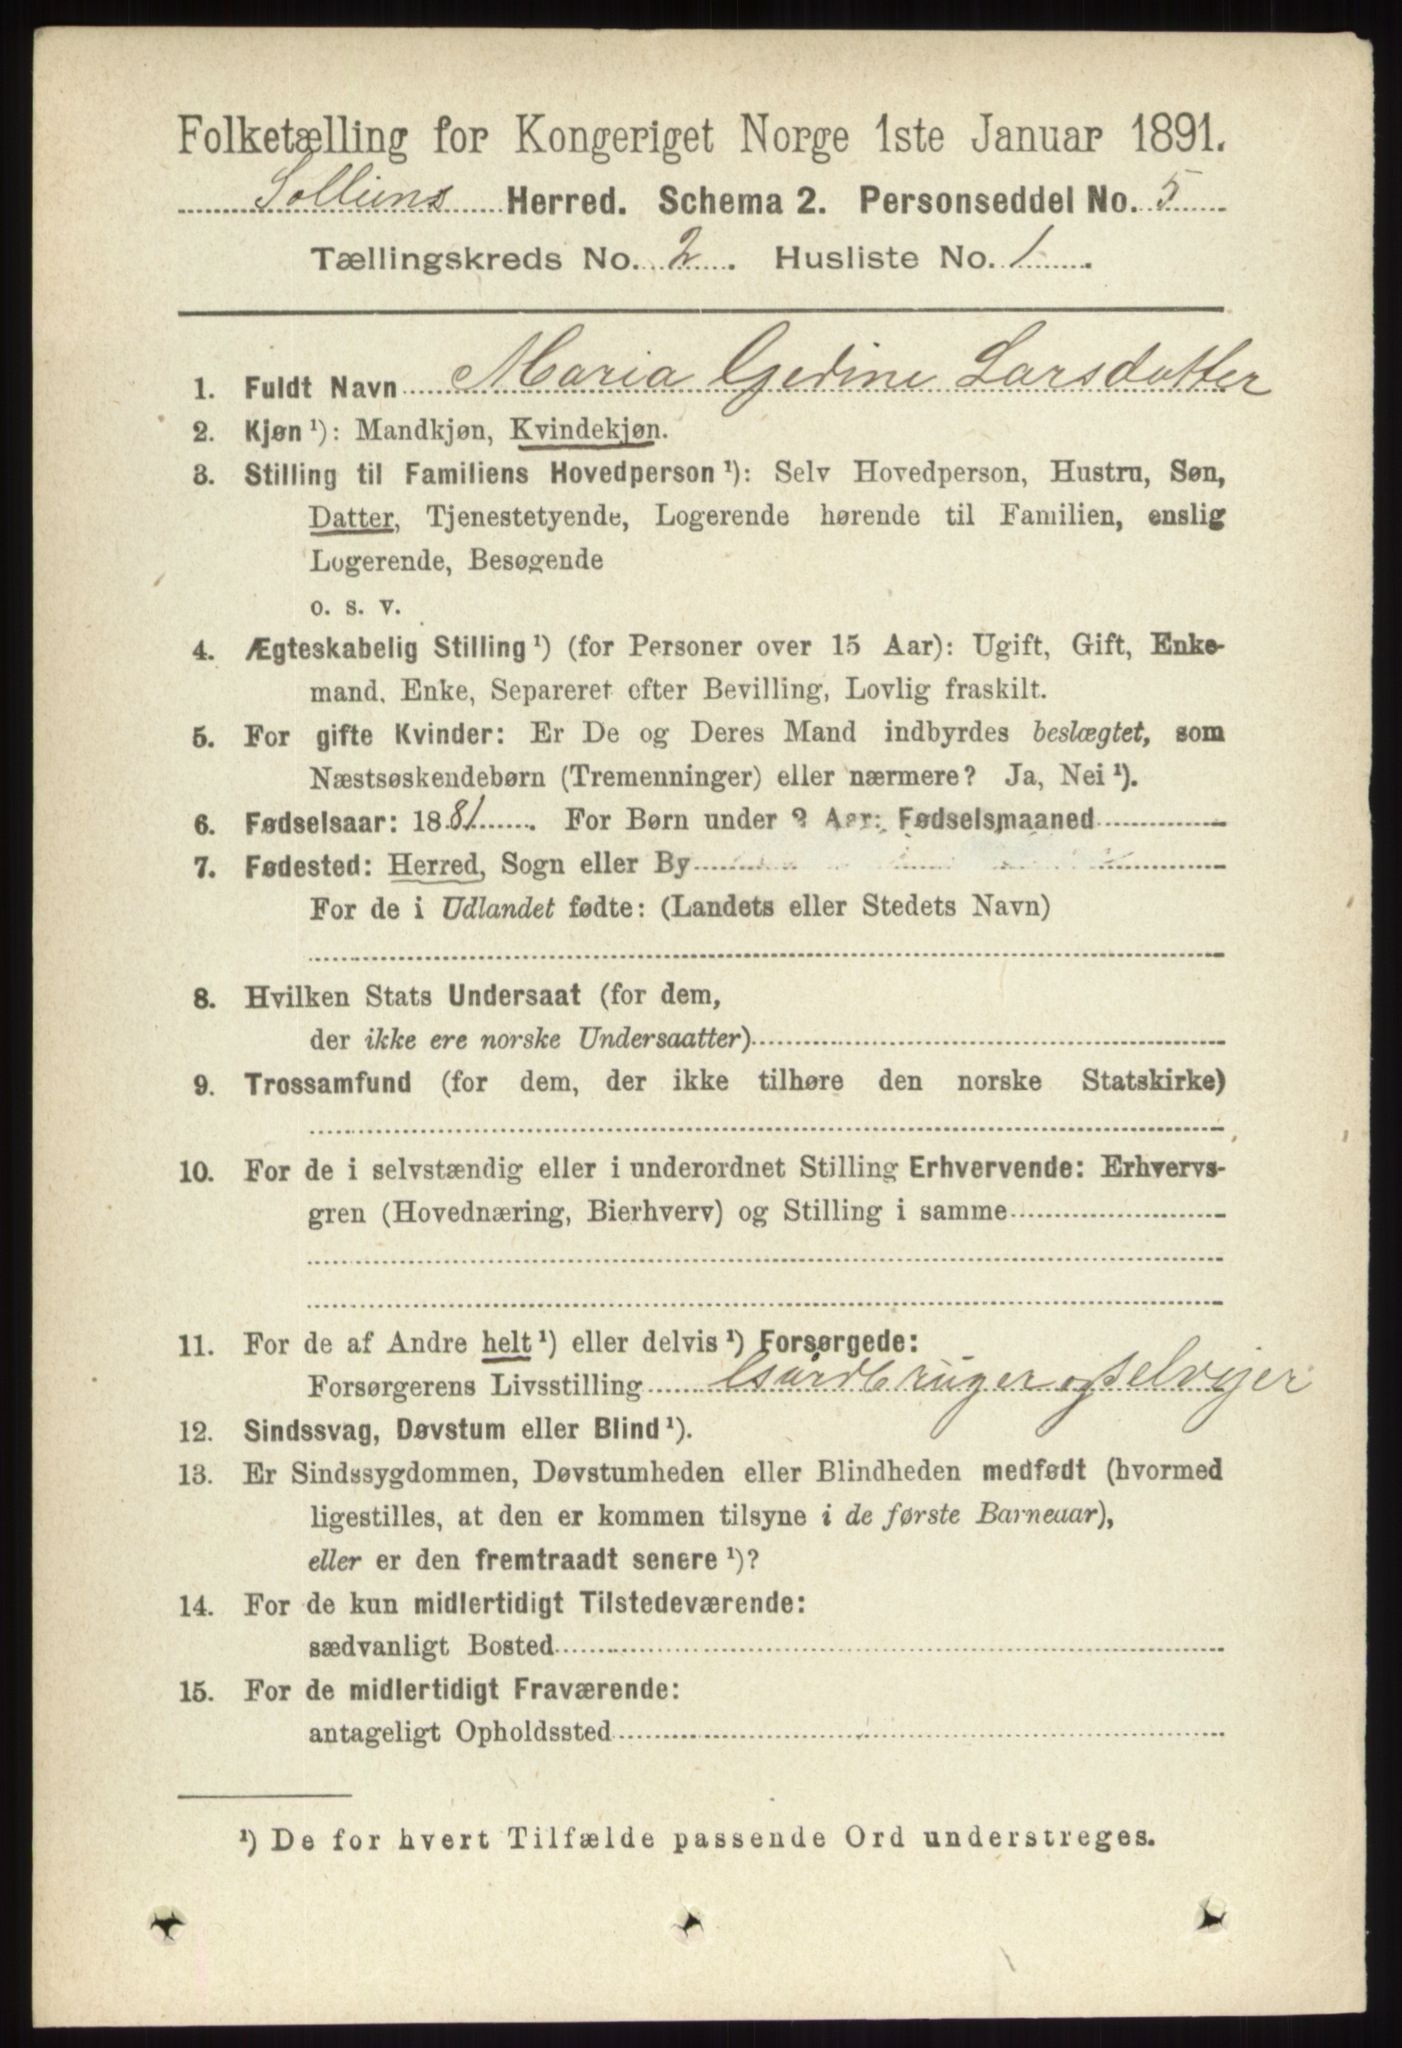 Folketælling for Kongeriget Norge 1ste Januar 1891.
Solliens Herred. Schema 2. Personseddel No. 5
Tællingskreds No. 2. Husliste No. 1.
1. Fuldt Navn Maria Gedine Larsdatter
2. Kjøn ¹): Mandkjøn, Kvindekjøn.
3. Stilling til Familiens Hovedperson ¹): Selv Hovedperson, Hustru, Søn,
Datter, Tjenestetyende, Logerende hørende til Familien, enslig
Logerende, Besøgende
o. s. v.
4. Ægteskabelig Stilling ¹) (for Personer over 15 Aar): Ugift, Gift, Enke-
mand, Enke, Separeret efter Bevilling, Lovlig fraskilt.
5. For gifte Kvinder: Er De og Deres Mand indbyrdes beslægtet, som
Næstsøskendebørn (Tremenninger) eller nærmere? Ja, Nei ¹).
6. Fødselsaar: 1881. For Børn under 2 Aar: Fødselsmaaned
7. Fødested: Herred, Sogn eller By
For de i Udlandet fødte: (Landets eller Stedets Navn)
8. Hvilken Stats Undersaat (for dem,
der ikke ere norske Undersaatter)
9. Trossamfund (for dem, der ikke tilhøre den norske Statskirke)
10. For de i selvstændig eller i underordnet Stilling Erhvervende: Erhvervs-
gren (Hovednæring, Bierhverv) og Stilling i samme
11. For de af Andre helt ¹) eller delvis ¹) Forsørgede:
Forsørgerens Livsstilling Gårdbruger og Selvejer
12. Sindssvag, Døvstum eller Blind ¹).
13. Er Sindssygdommen, Døvstumheden eller Blindheden medfødt (hvormed
ligestilles, at den er kommen tilsyne i de første Barneaar),
eller er den fremtraadt senere ¹)?
14. For de kun midlertidigt Tilstedeværende:
sædvanligt Bosted
15. For de midlertidigt Fraværende:
antageligt Opholdssted
¹) De for hvert Tilfælde passende Ord understreges.